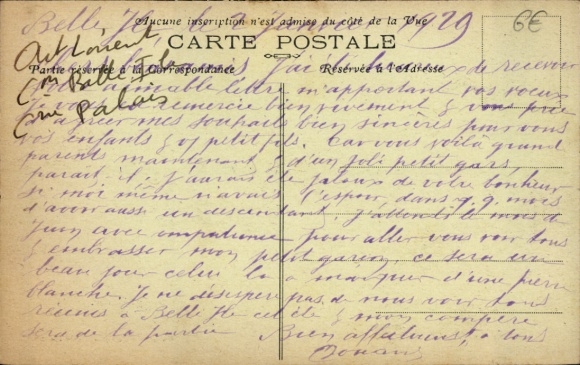 Belle Ile le 2 janvier 1929
Aucune inscription n'est admise du côté de la Vue
6€
CARTE POSTALE
Partie réservée à la Correspondance
Réservée à l'Adresse
Art Lorient,
Con Belle-Ile
Cne Palais
j'ai été heureux de recevoir
votre aimable lettre m'apportant vos voeux
Je vous remercie bien vivement & vous prie
d'agréer mes souhaits bien sincères pour vous
vos enfants & petit fils. Car vous voilà grand
parents maintenant & d'un joli petit gars,
parait-il. J'aurais été jaloux de votre bonheur
si moi même n'avais l'espoir, dans q.q. mois
d'avoir aussi un descendant. J'attends le mois de
Juin avec impatience pour aller vous voir tous
& embrasser mon petit garçon, ce sera un
beau jour celui là à marquer d'une pierre
blanche. Je ne désespère pas de vous voir tous
réunis à Belle Ile cet été & mon compère
sera de la partie Bien affectueust à tous